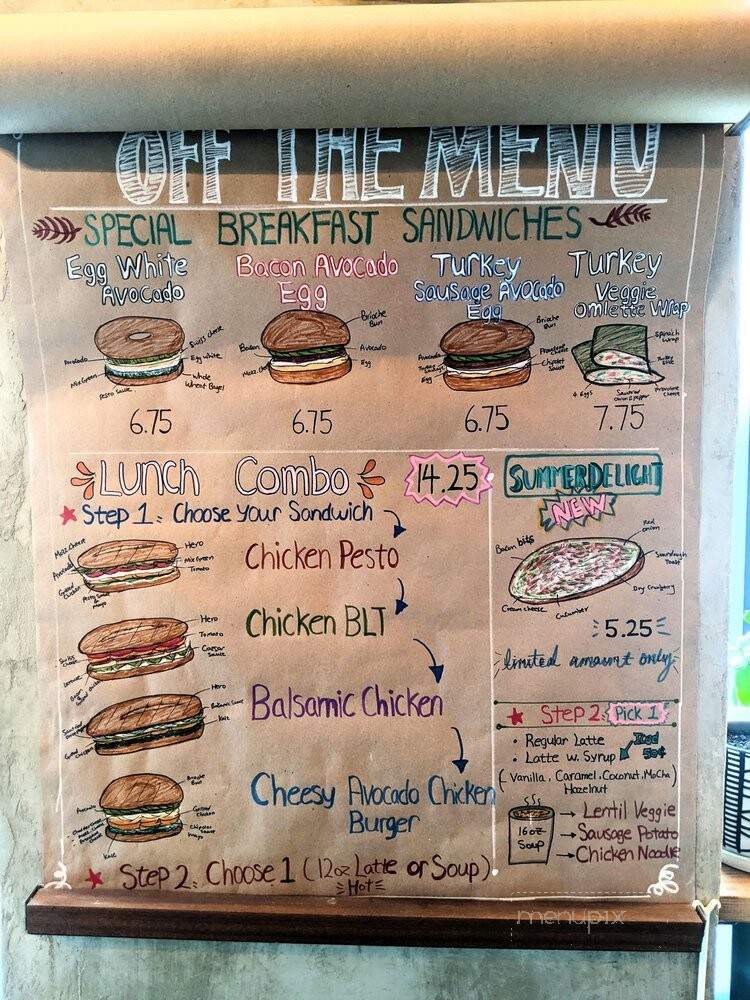 OFF THE MENU
SPECIAL BREAKFAST SANDWICHES
Egg White
AVOCADO
Swiss cheese
Avocado
Egg white
Mix Green
Whole
Wheat Bagel
Pesto Sauce
6.75
Bacon Avocado
Egg
Brioche
Bun
Bacon
Avocado
Egg
6.75
Turkey
Sausage Avocado
Egg
Brioche
Bun
Avocado
Provolone
Cheese
Chipotle
Sauce
Egg
6.75
Turkey
Veggie
Omlette Wrap
Spinach
Wrap
4 Eggs
Provolone
Cheese
7.75
Lunch Combo
14.25
Step 1: Choose Your Sandwich
Mozz Cheese
Hero
Avocado
Mix Green
Tomato
Grilled
Chicken
Pesto
Mayo
Chicken Pesto
Hero
Tomato
Caesar
Sauce
Swiss
Cheese
Lettuce
Chicken BLT
Hero
Balsamic Sauce
Kale
Grilled Chicken
Balsamic Chicken
Brioche
Bun
Avocado
Grilled
Chicken
Chipotle
Mayo
Kale
Cheesy Avocado Chicken
Burger
Step 2: Choose 1 (12oz Latte or Soup)
Hot
SUMMER DELIGHT
NEW
Red
onion
Bacon bits
Sourdough
Toast
Dry Cranberry
Cream cheese
Cucumber
5.25
limited amount only
Step 2: Pick 1
• Regular Latte
Iced
50¢
• Latte w. Syrup
(Vanilla, Caramel, Coconut, Mocha)
Hazelnut
16oz
Soup
→ Lentil Veggie
→ Sausage Potato
→ Chicken Noodle
menupix